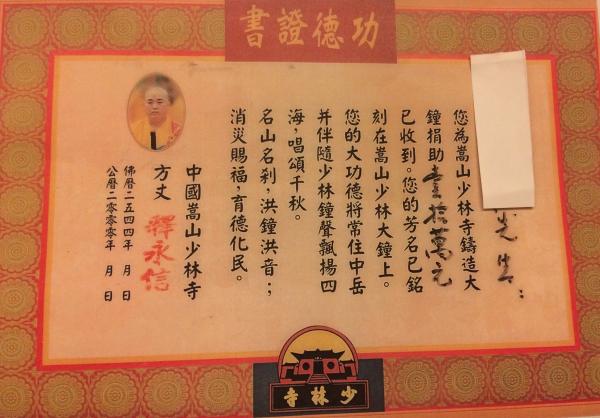 功德證書
先生：
您為嵩山少林寺鑄造大
鐘捐助壹拾萬元
已收到。您的芳名已銘
刻在嵩山少林大鐘上。
您的大功德將常住中岳
并伴隨少林鐘聲飄揚四
海，唱頌千秋。
名山名刹，洪鐘洪音；
消災賜福，育德化民。
中國嵩山少林寺
方丈 釋永信
佛曆二五四四年 月 日
公曆二零零零年 月 日
少林寺